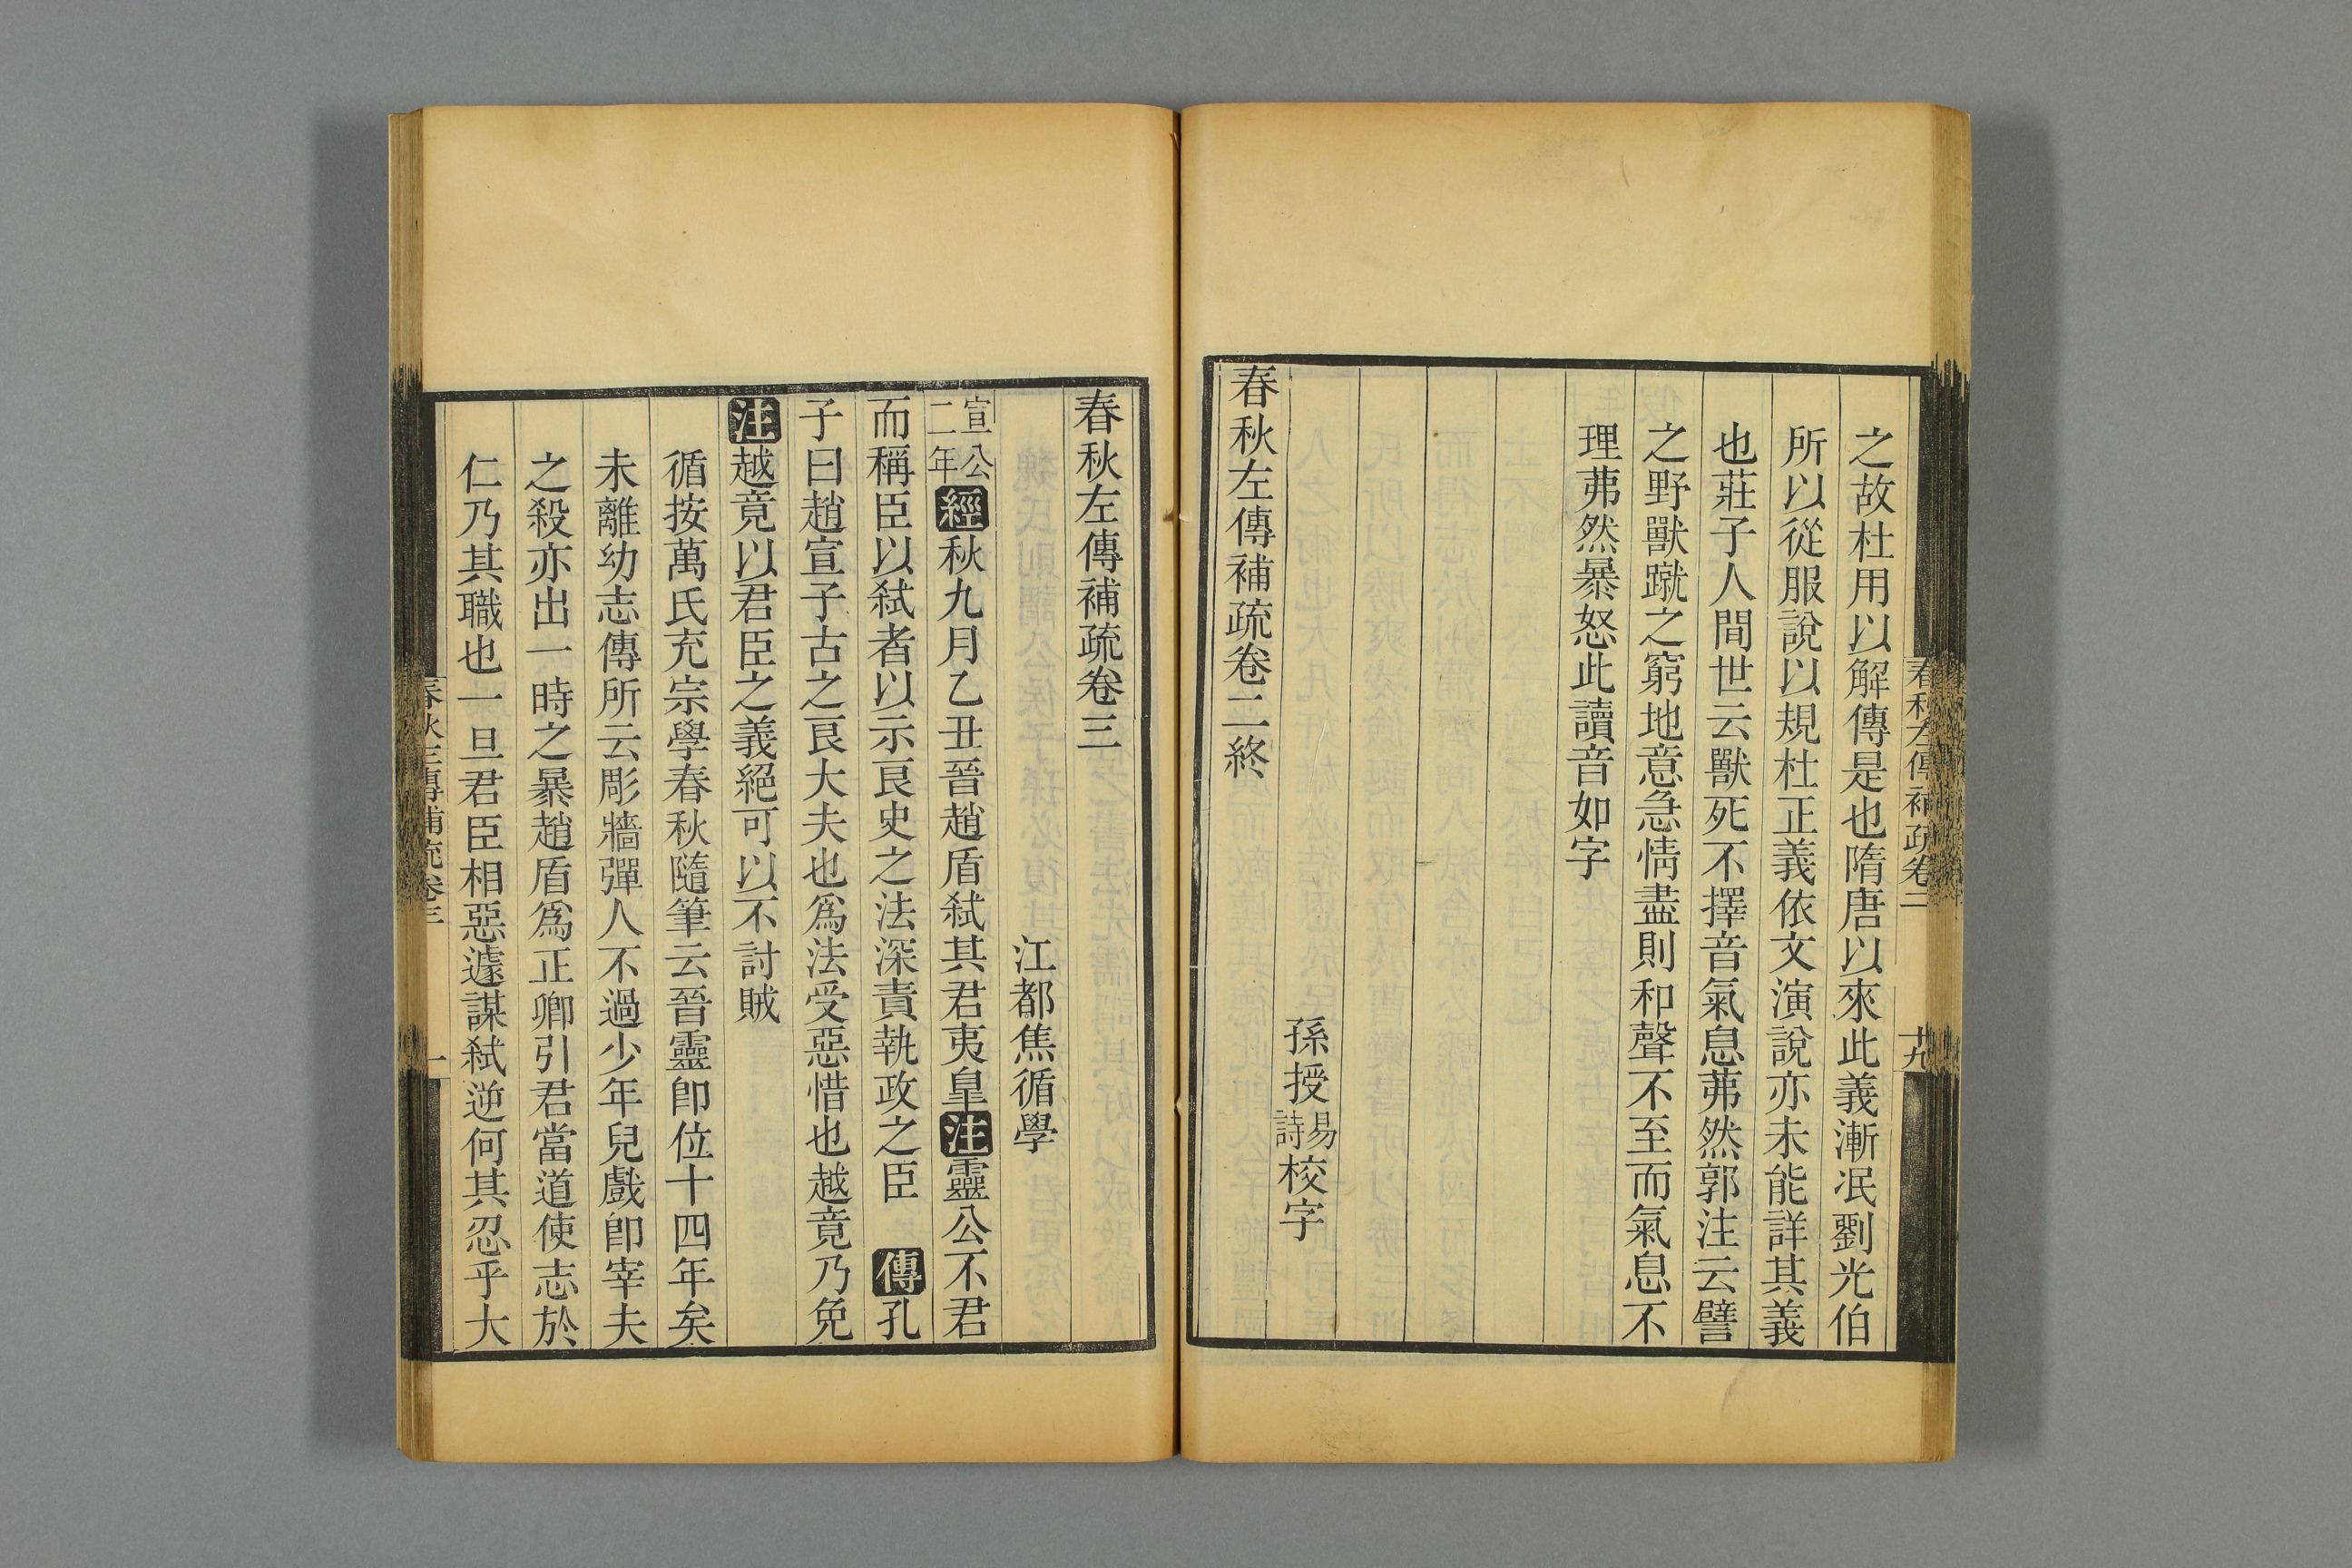 之故杜用以解傳是也隋唐以來此義漸泯劉光伯
所以從服說以規杜正義依文演說亦未能詳其義
也莊子人間世云獸死不擇音氣息茀然郭注云譬
之野獸蹴之窮地意急情盡則和聲不至而氣息不
理茀然暴怒此讀音如字
孫授易詩校字
春秋左傳補疏卷二終
春秋左傳補疏卷二
十九
春秋左傳補疏卷三
江都焦循學
宣公二年經秋九月乙丑晉趙盾弑其君夷皐注靈公不君
而稱臣以弑者以示良史之法深責執政之臣 傳孔
子曰趙宣子古之良大夫也爲法受惡惜也越竟乃免
注越竟以君臣之義絕可以不討賊
循按萬氏充宗學春秋隨筆云晉靈卽位十四年矣
未離幼志傳所云彫牆彈人不過少年兒戲卽宰夫
之殺亦出一時之暴趙盾爲正卿引君當道使志於
仁乃其職也一旦君臣相惡遽謀弑逆何其忍乎大
春秋左傳補疏卷三
一